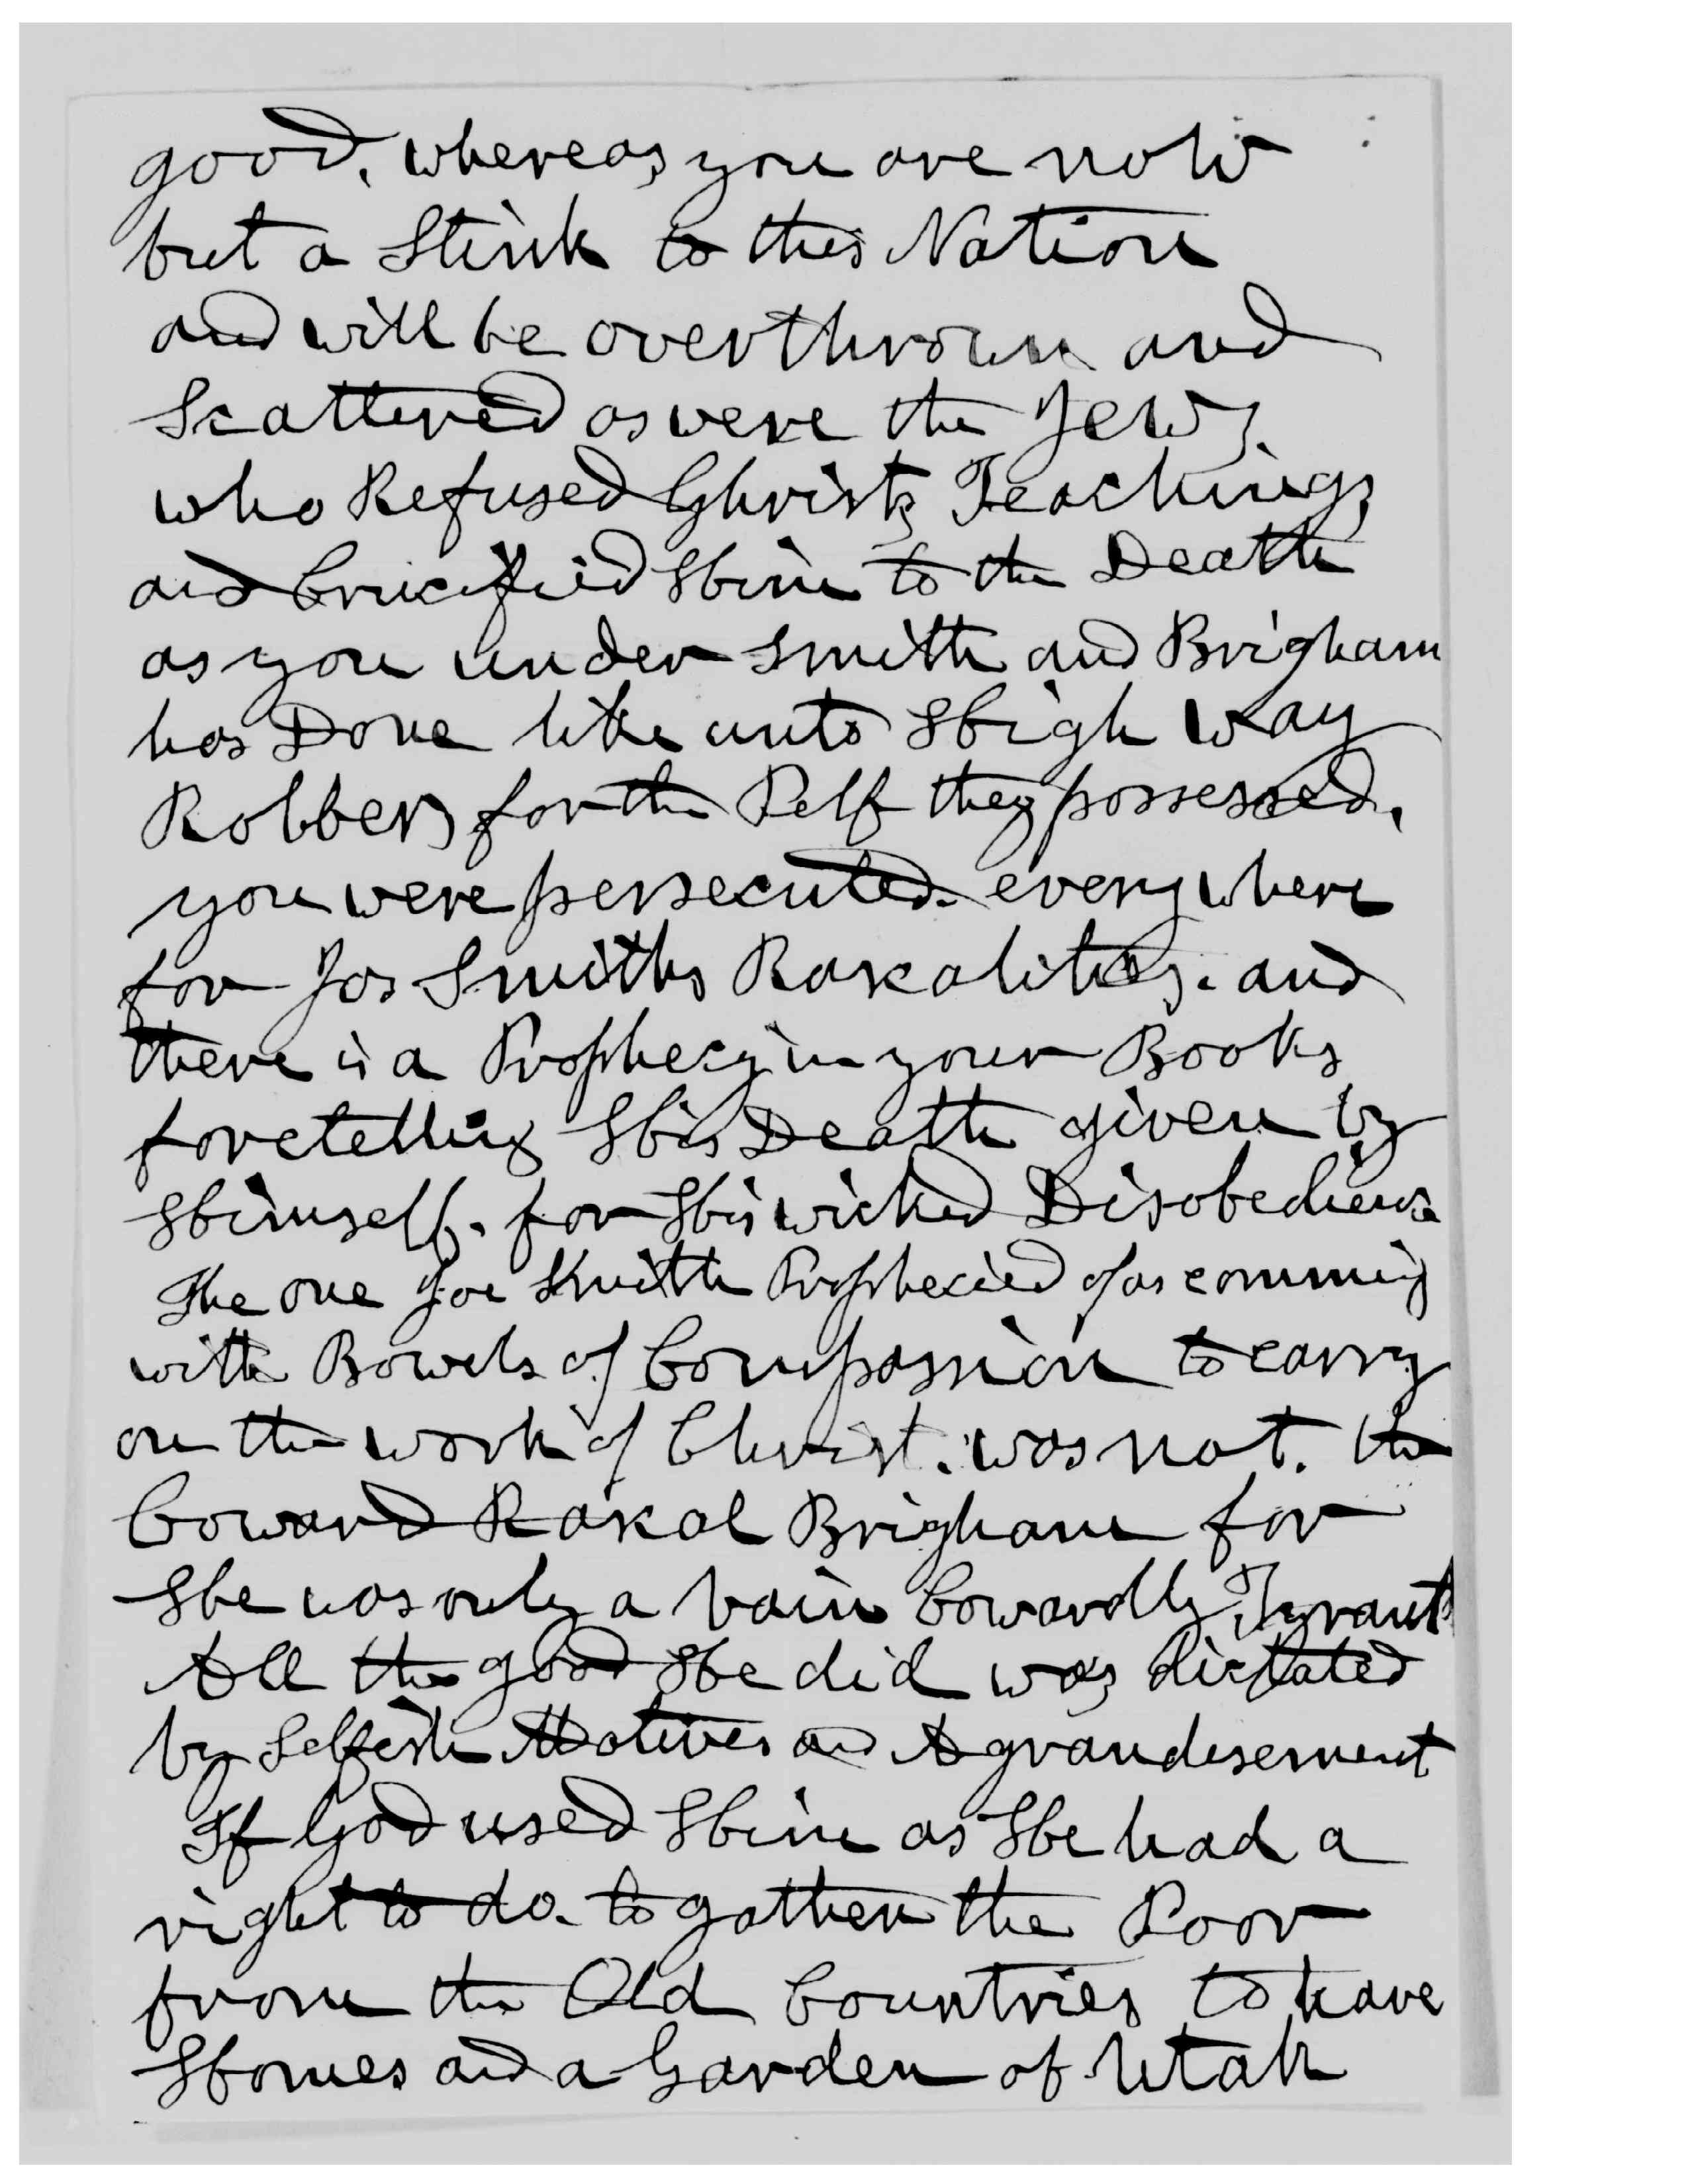 good, whereas you are now
but a Stink to this Nation
and will be overthrown and
Scattered as were the Jews.
who Refused Christs Teachings
and Crucified Him to the Death
as you under Smith and Brigham
has Done like unto High Way
Robbers for the Pelf they possessed,
you were persecuted. every where
for Jos Smiths Raskalities. and
there is a Prophecy in your Books
foretelling His Death given by
Himself. for His wicked Disobedience
The one Joe Smith Prophecied of as comming
with Bowels of Compassion to carry
on the work of Christ. was not. the
Coward Raskal Brigham for
He was only a vain Cowardly Tyrant
All the good He did was dictated
by Selfish Motives and Agrandisement
If God used Him as He had a
right to do. to gather the Poor
from the Old Countries to have
Homes and a Garden of Utah